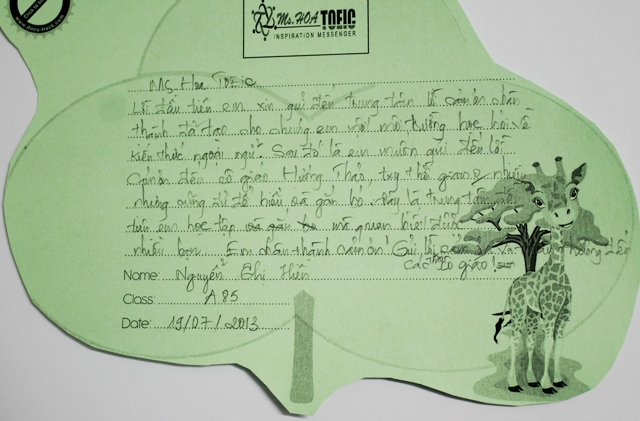 Ms. HOA TOEIC
INSPIRATION MESSENGER
Ms. Hoa TOEIC
Lời đầu tiên em xin gửi đến trung tâm lời cảm ơn chân
thành đã tạo cho chúng em một môi trường học hỏi về
kiến thức ngoại ngữ. Sau đó là em muốn gửi đến lời
cảm ơn đến cô giáo Hương Thảo, tuy thời gian 0 nhiều
nhưng cũng đủ để hiểu và gắn bó. Đây là trung tâm đầu
tiên em học tập và gắn bó mà quen biết được
nhiều bạn. Em chân thành cảm ơn! Gửi lời cảm ơn và
đến
các cô giáo!
Name: Nguyễn Thị Hiền
Class: A85
Date: 19/07/2013